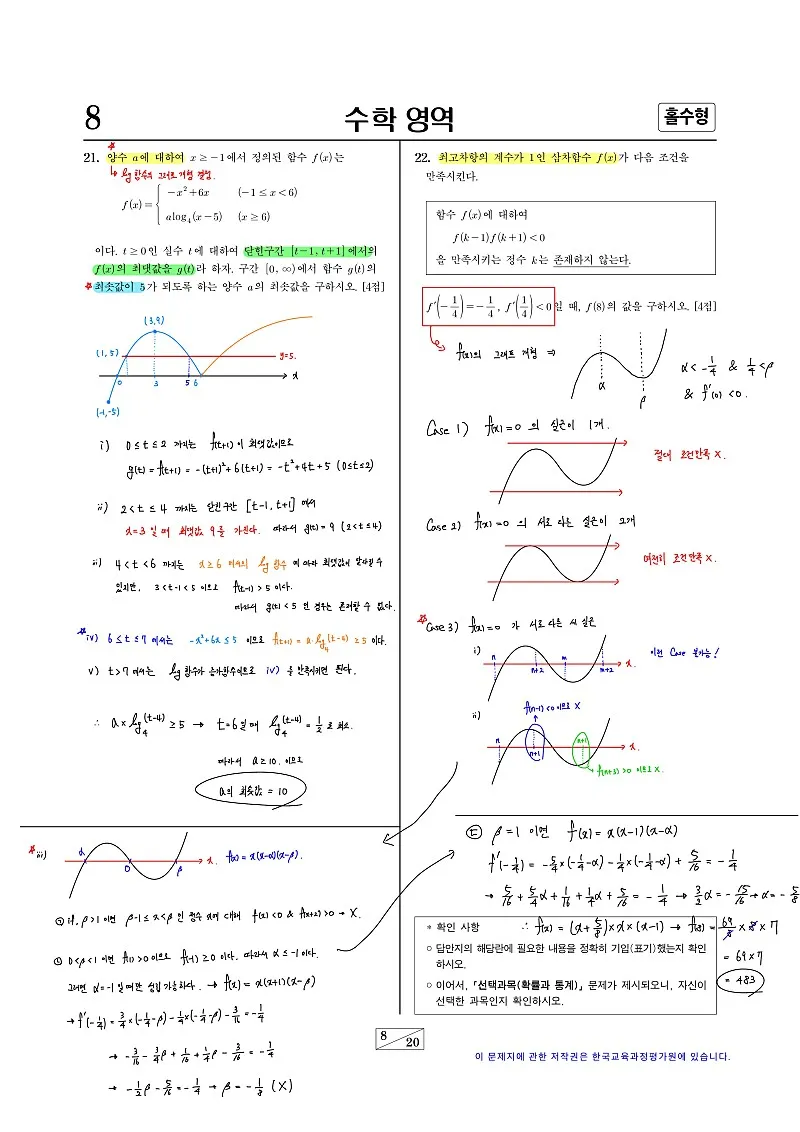 8
수학 영역
홀수형
21. 양수 a에 대하여 x ≥ -1에서 정의된 함수 f(x)는
↳ log 함수의 그래프 개형 결정.
f(x) = { -x²+6x (-1 ≤ x < 6)
alog₄(x-5) (x ≥ 6)
이다. t ≥ 0인 실수 t에 대하여 닫힌구간 [t-1, t+1]에서의
f(x)의 최댓값을 g(t)라 하자. 구간 [0, ∞)에서 함수 g(t)의
최솟값이 5가 되도록 하는 양수 a의 최솟값을 구하시오. [4점]
(3,9)
(1,5)
y=5.
0 3 5 6 x
(-1,-5)
i) 0≤t≤2 까지는 f(t+1)이 최댓값이므로
g(t) = f(t+1) = -(t+1)²+6(t+1) = -t²+4t+5 (0≤t≤2)
ii) 2<t≤4 까지는 닫힌구간 [t-1, t+1] 에서
x=3 일 때 최댓값 9를 가진다. 따라서 g(t)=9 (2<t≤4)
iii) 4<t<6 까지는 x≥6 에서의 log 함수에 따라 최댓값이 달라질 수
있지만, 3<t-1<5 이므로 f(t-1)>5 이다.
따라서 g(t)<5 인 경우는 존재할 수 없다.
iv) 6≤t≤7 에서는 -x²+6x≤5 이므로 f(t+1)=a·log₄(t-4) ≥5 이다.
v) t>7 에서는 log 함수가 증가함수이므로 iv) 을 만족시키면 된다.
∴ a×log₄(t-4) ≥5 → t=6일 때 log₄(t-4) = 1/2 로 최소.
따라서 a≥10. 이므로
a의 최솟값 = 10
22. 최고차항의 계수가 1인 삼차함수 f(x)가 다음 조건을
만족시킨다.
함수 f(x)에 대하여
f(k-1)f(k+1)<0
을 만족시키는 정수 k는 존재하지 않는다.
f'(-1/4)=-1/4, f'(1/4)<0일 때, f(8)의 값을 구하시오. [4점]
f(x)의 그래프 개형 ⇒
α
β
α<-1/4 & 1/4<β
& f'(0)<0.
Case 1) f(x)=0 의 실근이 1개.
절대 조건만족 X.
Case 2) f(x)=0 의 서로 다른 실근이 2개
여전히 조건만족 X.
Case 3) f(x)=0 가 서로 다른 세 실근
i)
n n+2 m m+2 x.
이런 Case 불가능!
ii)
f(n-1)<0 이므로 X
n n+1 n+1 x.
f(n+3)>0 이므로 X.
iii)
α 0 β x.
f(x)=x(x-α)(x-β).
β>1 이면 β-1≤x<β 인 정수 x에 대해 f(x)<0 & f(x+2)>0 → X.
0<β<1 이면 f(1)>0이므로 f(-1)≥0 이다. 따라서 α≤-1이다.
그러면 α=-1일 때만 성립가능하다. → f(x)=x(x+1)(x-β)
→ f'(-1/4)=3/4×(-1/4-β)-1/4×(-1/4-β)-3/16=-1/4
→ -3/16-3/4β+1/16+1/4β-3/16=-1/4
→ -1/2β-5/16=-1/4 → β=-1/8 (X)
β=1 이면 f(x)=x(x-1)(x-α)
f'(-1/4)=-5/4×(-1/4-α)-1/4×(-1/4-α)+5/16=-1/4
→ 5/16+5/4α+1/16+1/4α+5/16=-1/4 → 3/2α=-15/16 → α=-5/8
∴ f(x)=(x+5/8)×x×(x-1) → f(8)=69/8×8×7
= 69×7
= 483
* 확인 사항
○ 답안지의 해당란에 필요한 내용을 정확히 기입(표기)했는지 확인
하시오.
○ 이어서, 「선택과목(확률과 통계)」 문제가 제시되오니, 자신이
선택한 과목인지 확인하시오.
8
20
이 문제지에 관한 저작권은 한국교육과정평가원에 있습니다.